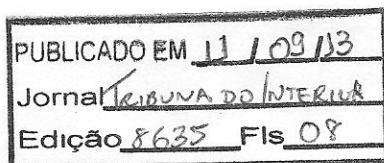 PUBLICADO EM 11 / 09 / 13
Jornal TRIBUNA DO INTERIOR
Edição 8635 Fls 08